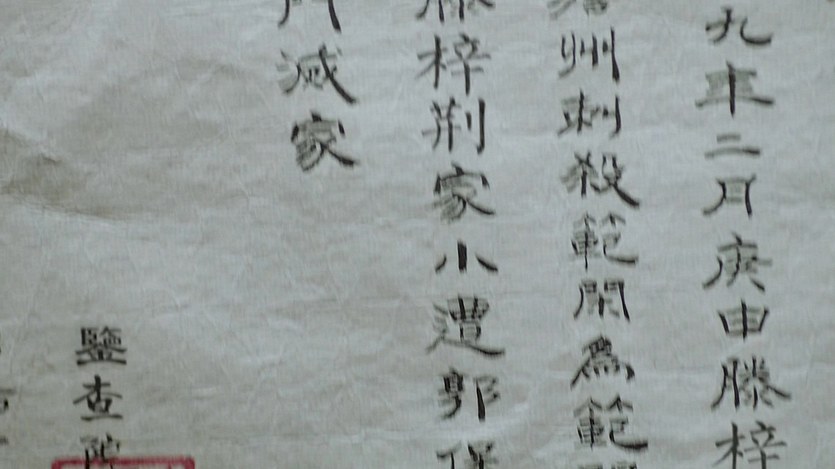 九年二月庚申滕梓
州刺殺範閑為範
梓荆家小遭郭
滅家
鑒查院